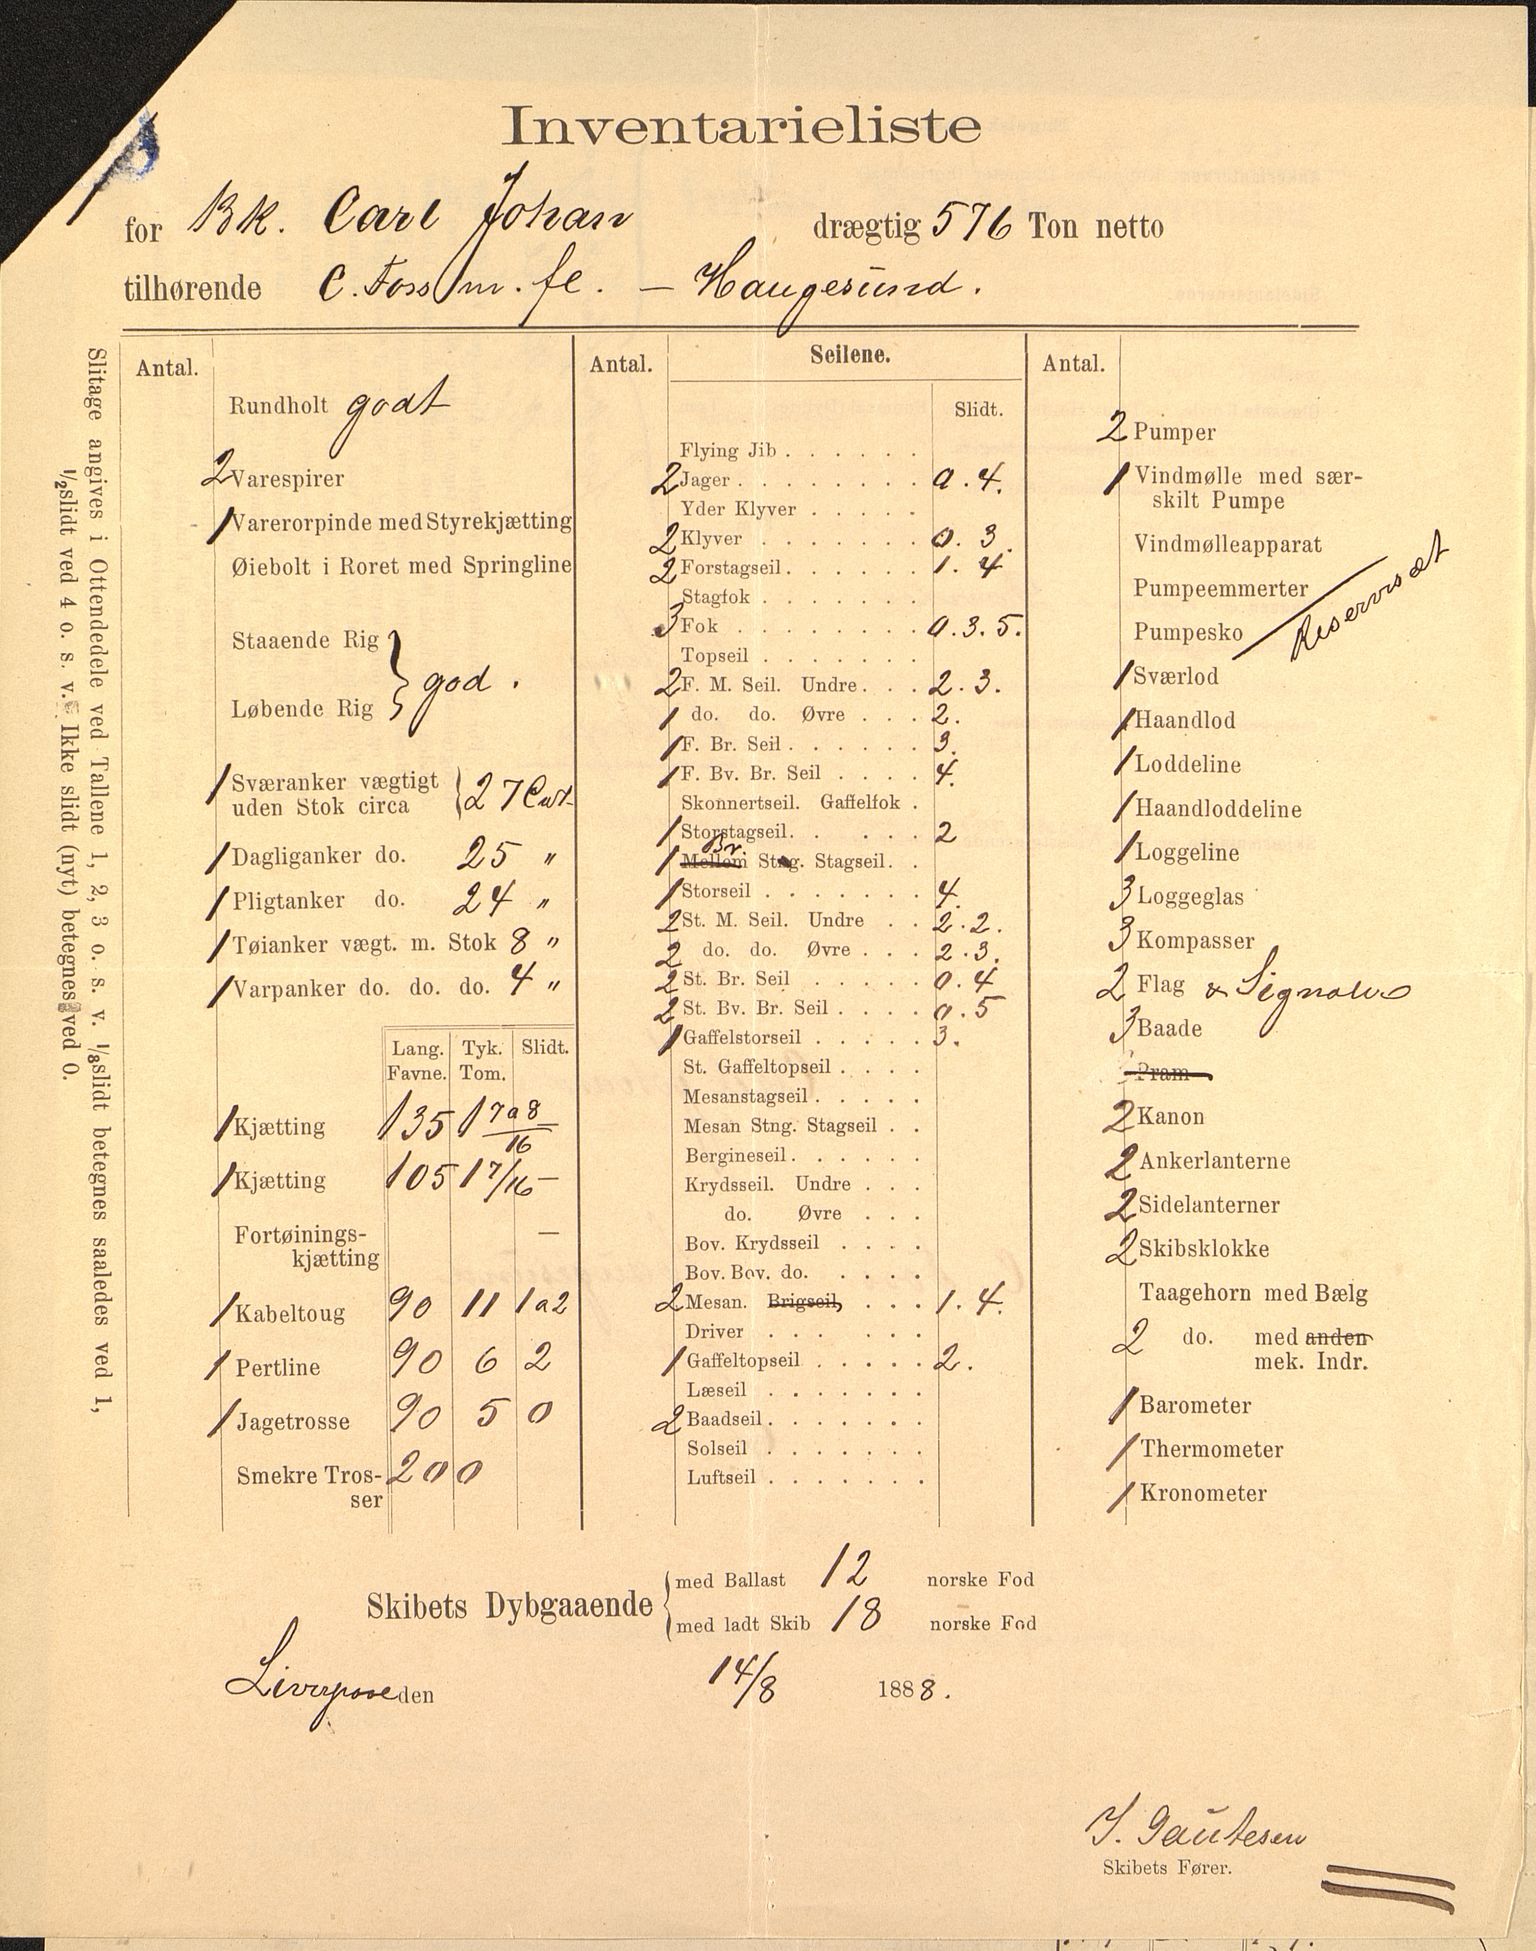 Inventarieliste
for Bk. Carl Johan drægtig 576 Ton netto
tilhørende C. Foss m. fl. — Haugesund.
Slitage angives i Ottendedele ved Tallene 1, 2, 3 o. s. v. 1/8slidt betegnes saaledes ved 1,
1/2slidt ved 4 o. s. v. Ikke slidt (nyt) betegnes ved 0.
Antal.
Rundholt godt
2 Varespirer
1 Varerorpinde med Styrekjætting
Øiebolt i Roret med Springline
Staaende Rig
Løbende Rig } god.
1 Sværanker vægtigt
uden Stok circa { 27 Cwt
1 Dagliganker do. 25 "
1 Pligtanker do. 24 "
1 Tøianker vægt. m. Stok 8 "
1 Varpanker do. do. do. 4 "
Lang. Tyk. Slidt.
Favne. Tom.
1 Kjætting 135 1 7a8/16
1 Kjætting 105 1 7/16 —
Fortøinings-
kjætting —
1 Kabeltoug 90 11 1a2
1 Pertline 90 6 2
1 Jagetrosse 90 5 0
Smekre Tros- 200
ser
Antal. Seilene.
Slidt.
Flying Jib . . . . . .
2 Jager . . . . . . . . 0. 4.
Yder Klyver . . . . .
2 Klyver . . . . . . . 0. 3.
2 Forstagseil . . . . . . 1. 4
Stagfok . . . . . . .
3 Fok . . . . . . . . 0. 3. 5.
Topseil . . . . . . .
2 F. M. Seil. Undre . . . 2. 3.
1 do. do. Øvre . . . 2.
1 F. Br. Seil . . . . . . 3.
1 F. Bv. Br. Seil . . . . 4.
Skonnertseil. Gaffelfok .
1 Storstagseil . . . . . 2
Br.
1 Mellem Stng. Stagseil . .
1 Storseil . . . . . . . 4.
2 St. M. Seil. Undre . . 2. 2.
2 do. do. Øvre . . . 2. 3.
2 St. Br. Seil . . . . . 0. 4
2 St. Bv. Br. Seil . . . . 0. 5
1 Gaffelstorseil . . . . . 3.
St. Gaffeltopseil . . . .
Mesanstagseil . . . . .
Mesan Stng. Stagseil . .
Bergineseil . . . . . .
Krydsseil. Undre . . .
do. Øvre . . .
Bov. Krydsseil . . . .
Bov. Bov. do. . . . .
2 Mesan. Brigseil, . . . 1. 4.
Driver . . . . . .
1 Gaffeltopseil . . . . . 2.
Læseil . . . . . . .
2 Baadseil . . . . . . .
Solseil . . . . . . .
Luftseil . . . . . . .
Antal.
2 Pumper
1 Vindmølle med sær-
skilt Pumpe
Vindmølleapparat
Pumpeemmerter
Pumpesko
Reservesæt
1 Sværlod
1 Haandlod
1 Loddeline
1 Haandloddeline
1 Loggeline
3 Loggeglas
3 Kompasser
2 Flag & Signaler
3 Baade
Pram
2 Kanon
2 Ankerlanterne
2 Sidelanterner
2 Skibsklokke
Taagehorn med Bælg
2 do. med anden
mek. Indr.
1 Barometer
1 Thermometer
1 Kronometer
Skibets Dybgaaende { med Ballast 12 norske Fod
med ladt Skib 18 norske Fod
Liverpool den 14/8 1888.
I. Gautesen
Skibets Fører.